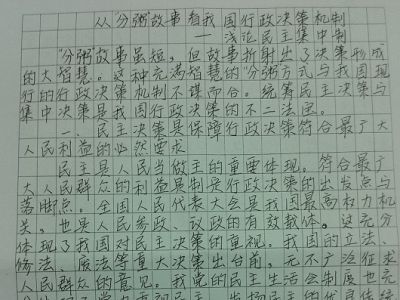 从"分粥"故事看我国行政决策机制
—浅论民主集中制
"分粥"故事虽短,但故事折射出了决策形成
的大智慧。这种充满智慧的"分粥"方式与我国现
行的行政决策机制不谋而合。统筹民主决策与
集中决策是我国行政决策的不二法宝。
一、民主决策是保障行政决策符合最广大
人民利益的必然要求
民主是人民当做主的重要体现。符合最广
大人民群众的利益是制定行政决策的出发点与
落脚点。全国人民代表大会是我国最高权力机
关,也是人民参政、议政的有效载体。这充分
体现了我国对民主决策的重视。我国的立法、
修法、废法等重大决策出台前,无不广泛征求
人民群众的意见。我党的民主生活会制度也充